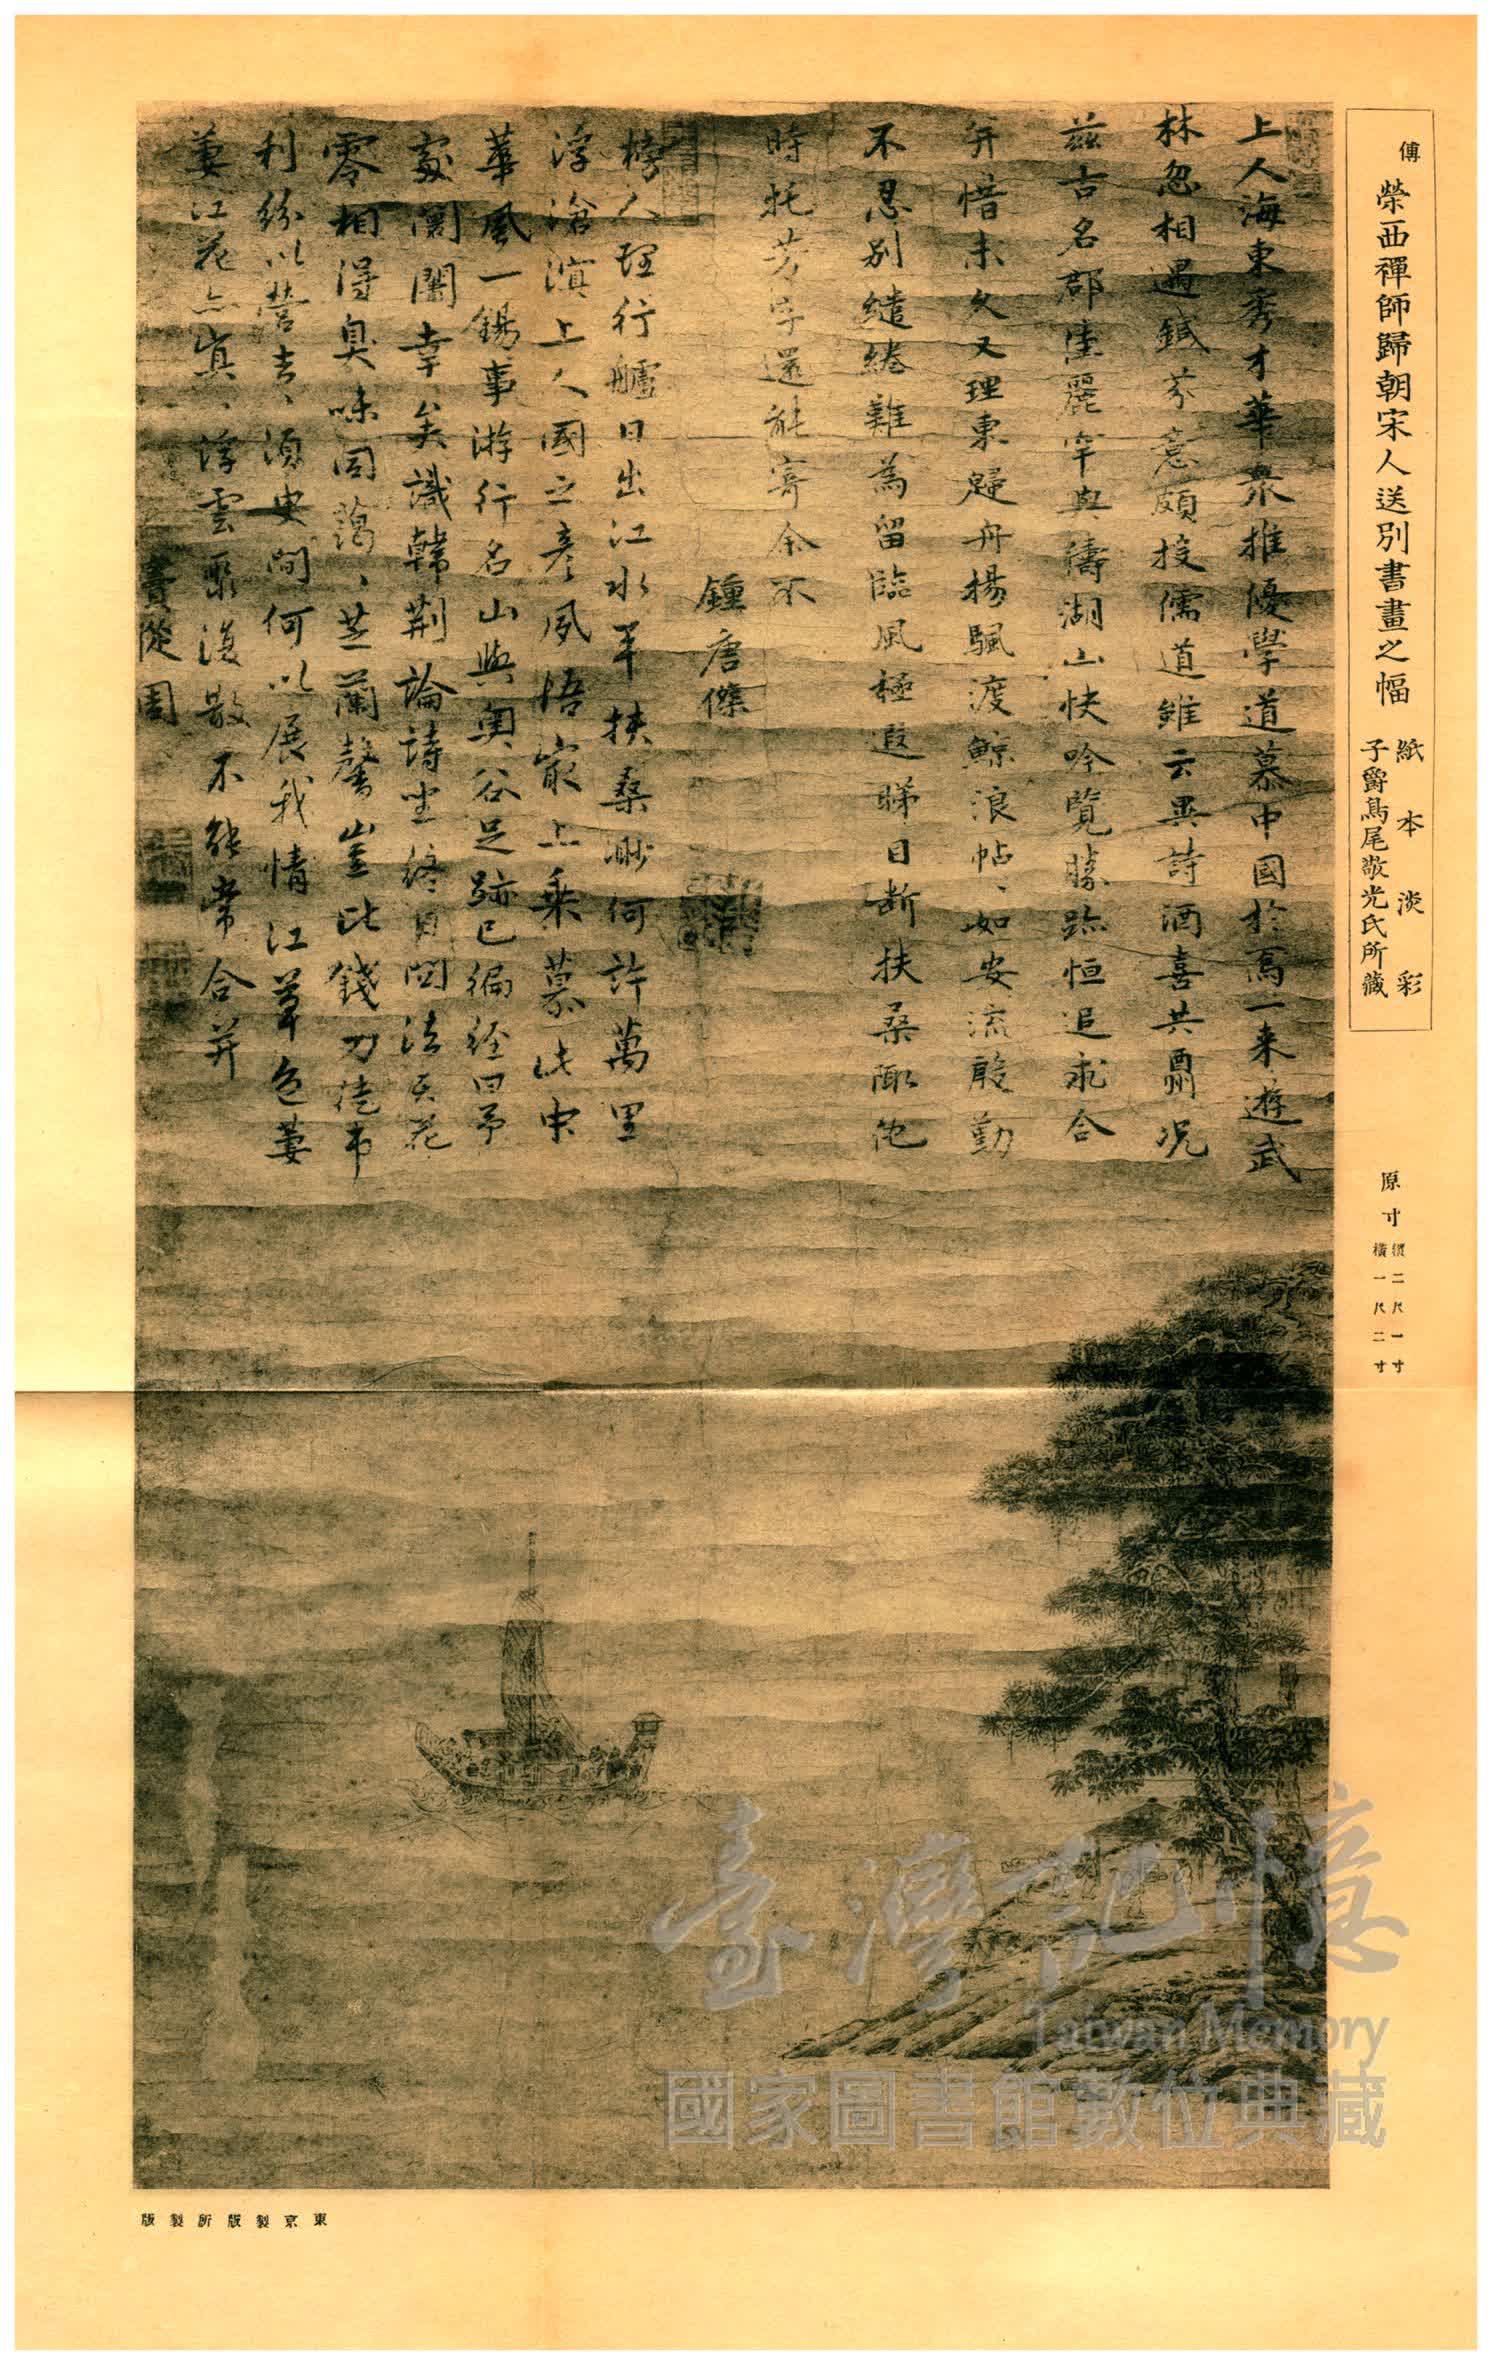 傳
榮西禪師歸朝宋人送別書畫之幅
紙本淡彩
子爵鳥尾敬光氏所藏
原寸
縱二尺一寸
橫一尺二寸
上人海東秀才華衆推優學道慕中國於焉一来遊武
林忽相遇鍼芥意頗投儒道雖云異詩酒喜共酬况
兹古名郡佳麗罕與儔湖山快吟覽勝跡恒追求合
并惜未久又理東歸舟楊颿渡鯨浪帖、如安流殷勤
不忍别繾綣難為留臨風極遐睇目断扶桑陬他
時托芳字還能寄余不
鍾唐傑
榜人理行艫日出江水平扶桑渺何許萬里
浮滄溟上人國之彦夙悟最上乘慕此中
華風一錫事游行名山與奥谷足跡已徧经曰予
寂闃闃幸矣識韓荆論詩坐終日問法天花
零相得臭味同藹、芝蘭馨豈比錢刀徒市
利紛以營去、須臾間何以展我情江草色萋
萋江花亦冥、浮雲聚復散不能常合并
竇從周
東京製版所製版
臺灣記憶
Taiwan Memory
國家圖書館數位典藏